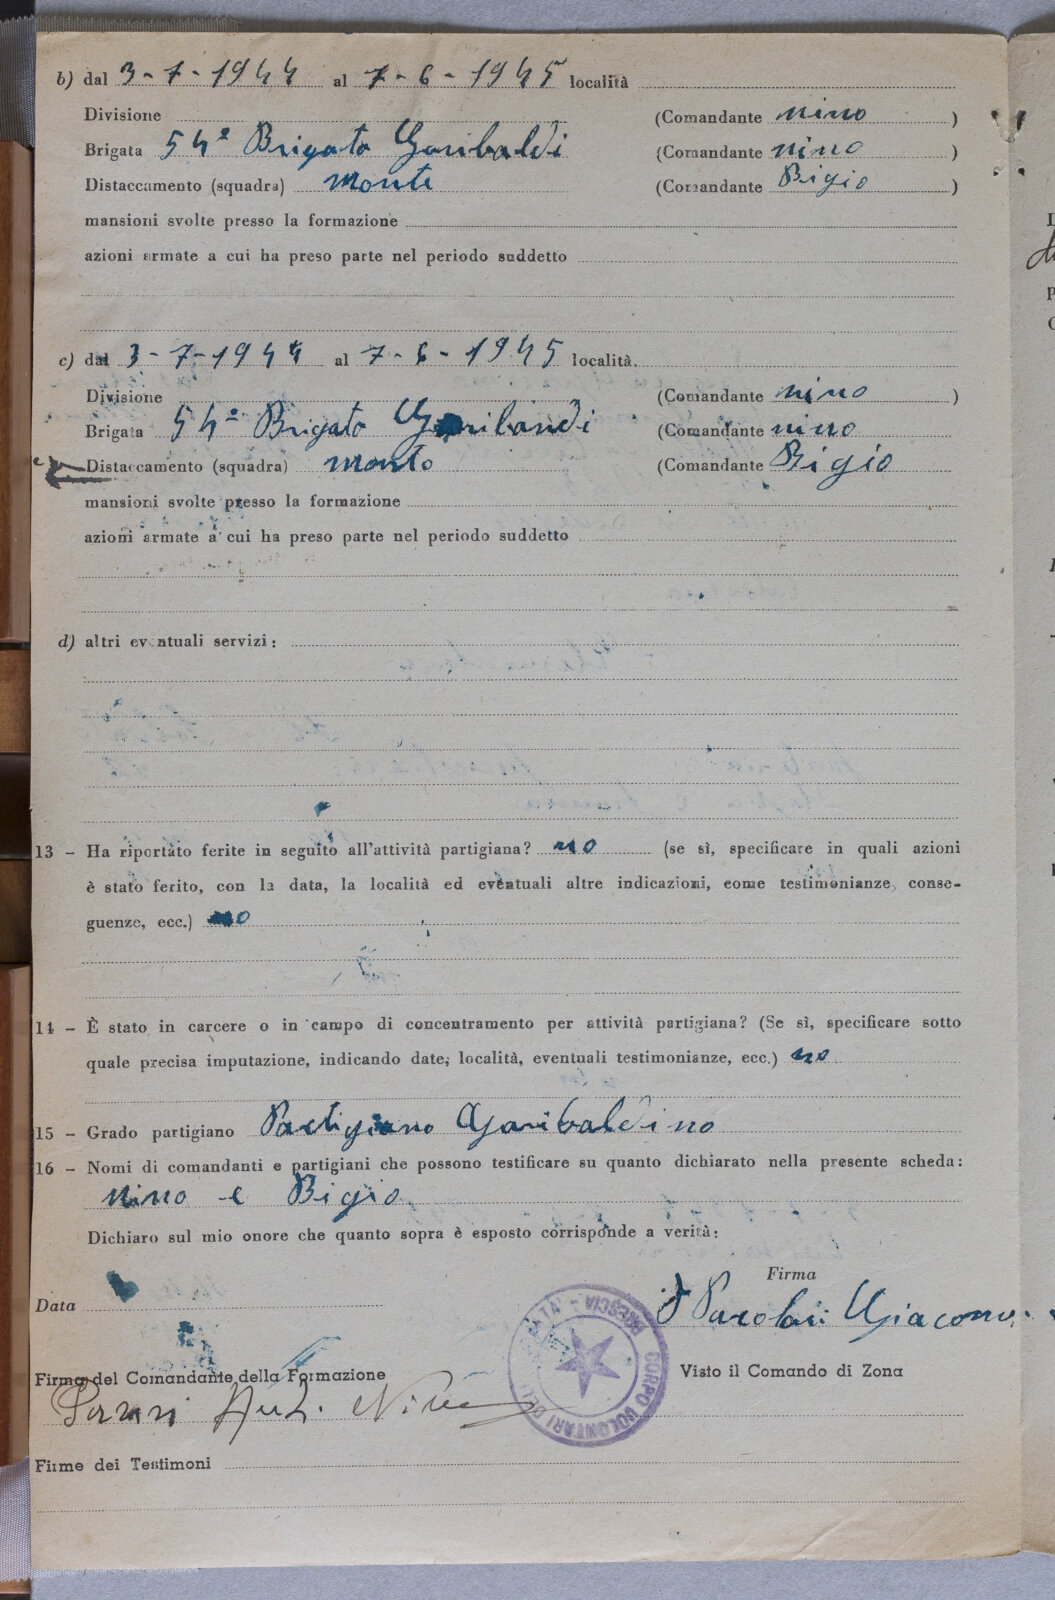 b) dal 3-7-1944 al 7-6-1945 località
Divisione (Comandante nino )
Brigata 54ª Brigata Garibaldi (Comandante nino )
Distaccamento (squadra) monte (Comandante Bigio )
mansioni svolte presso la formazione
azioni armate a cui ha preso parte nel periodo suddetto
c) dal 3-7-1944 al 7-6-1945 località.
Divisione (Comandante nino )
Brigata 54ª Brigata Garibandi (Comandante nino )
Distaccamento (squadra) monto (Comandante Bigio )
mansioni svolte presso la formazione
azioni armate a cui ha preso parte nel periodo suddetto
d) altri eventuali servizi:
13 - Ha riportato ferite in seguito all'attività partigiana? no (se sì, specificare in quali azioni
è stato ferito, con la data, la località ed eventuali altre indicazioni, come testimonianze, conse-
guenze, ecc.) no
14 - È stato in carcere o in campo di concentramento per attività partigiana? (Se sì, specificare sotto
quale precisa imputazione, indicando date, località, eventuali testimonianze, ecc.) no
15 - Grado partigiano Partigiano Garibaldino
16 - Nomi di comandanti e partigiani che possono testificare su quanto dichiarato nella presente scheda:
nino e Bigio
Dichiaro sul mio onore che quanto sopra è esposto corrisponde a verità:
Firma
Data
Parolari Giacomo.
CORPO VOLONTARI DELLA
BRESCIA
Firma del Comandante della Formazione
Visto il Comando di Zona
Nino
Firme dei Testimoni